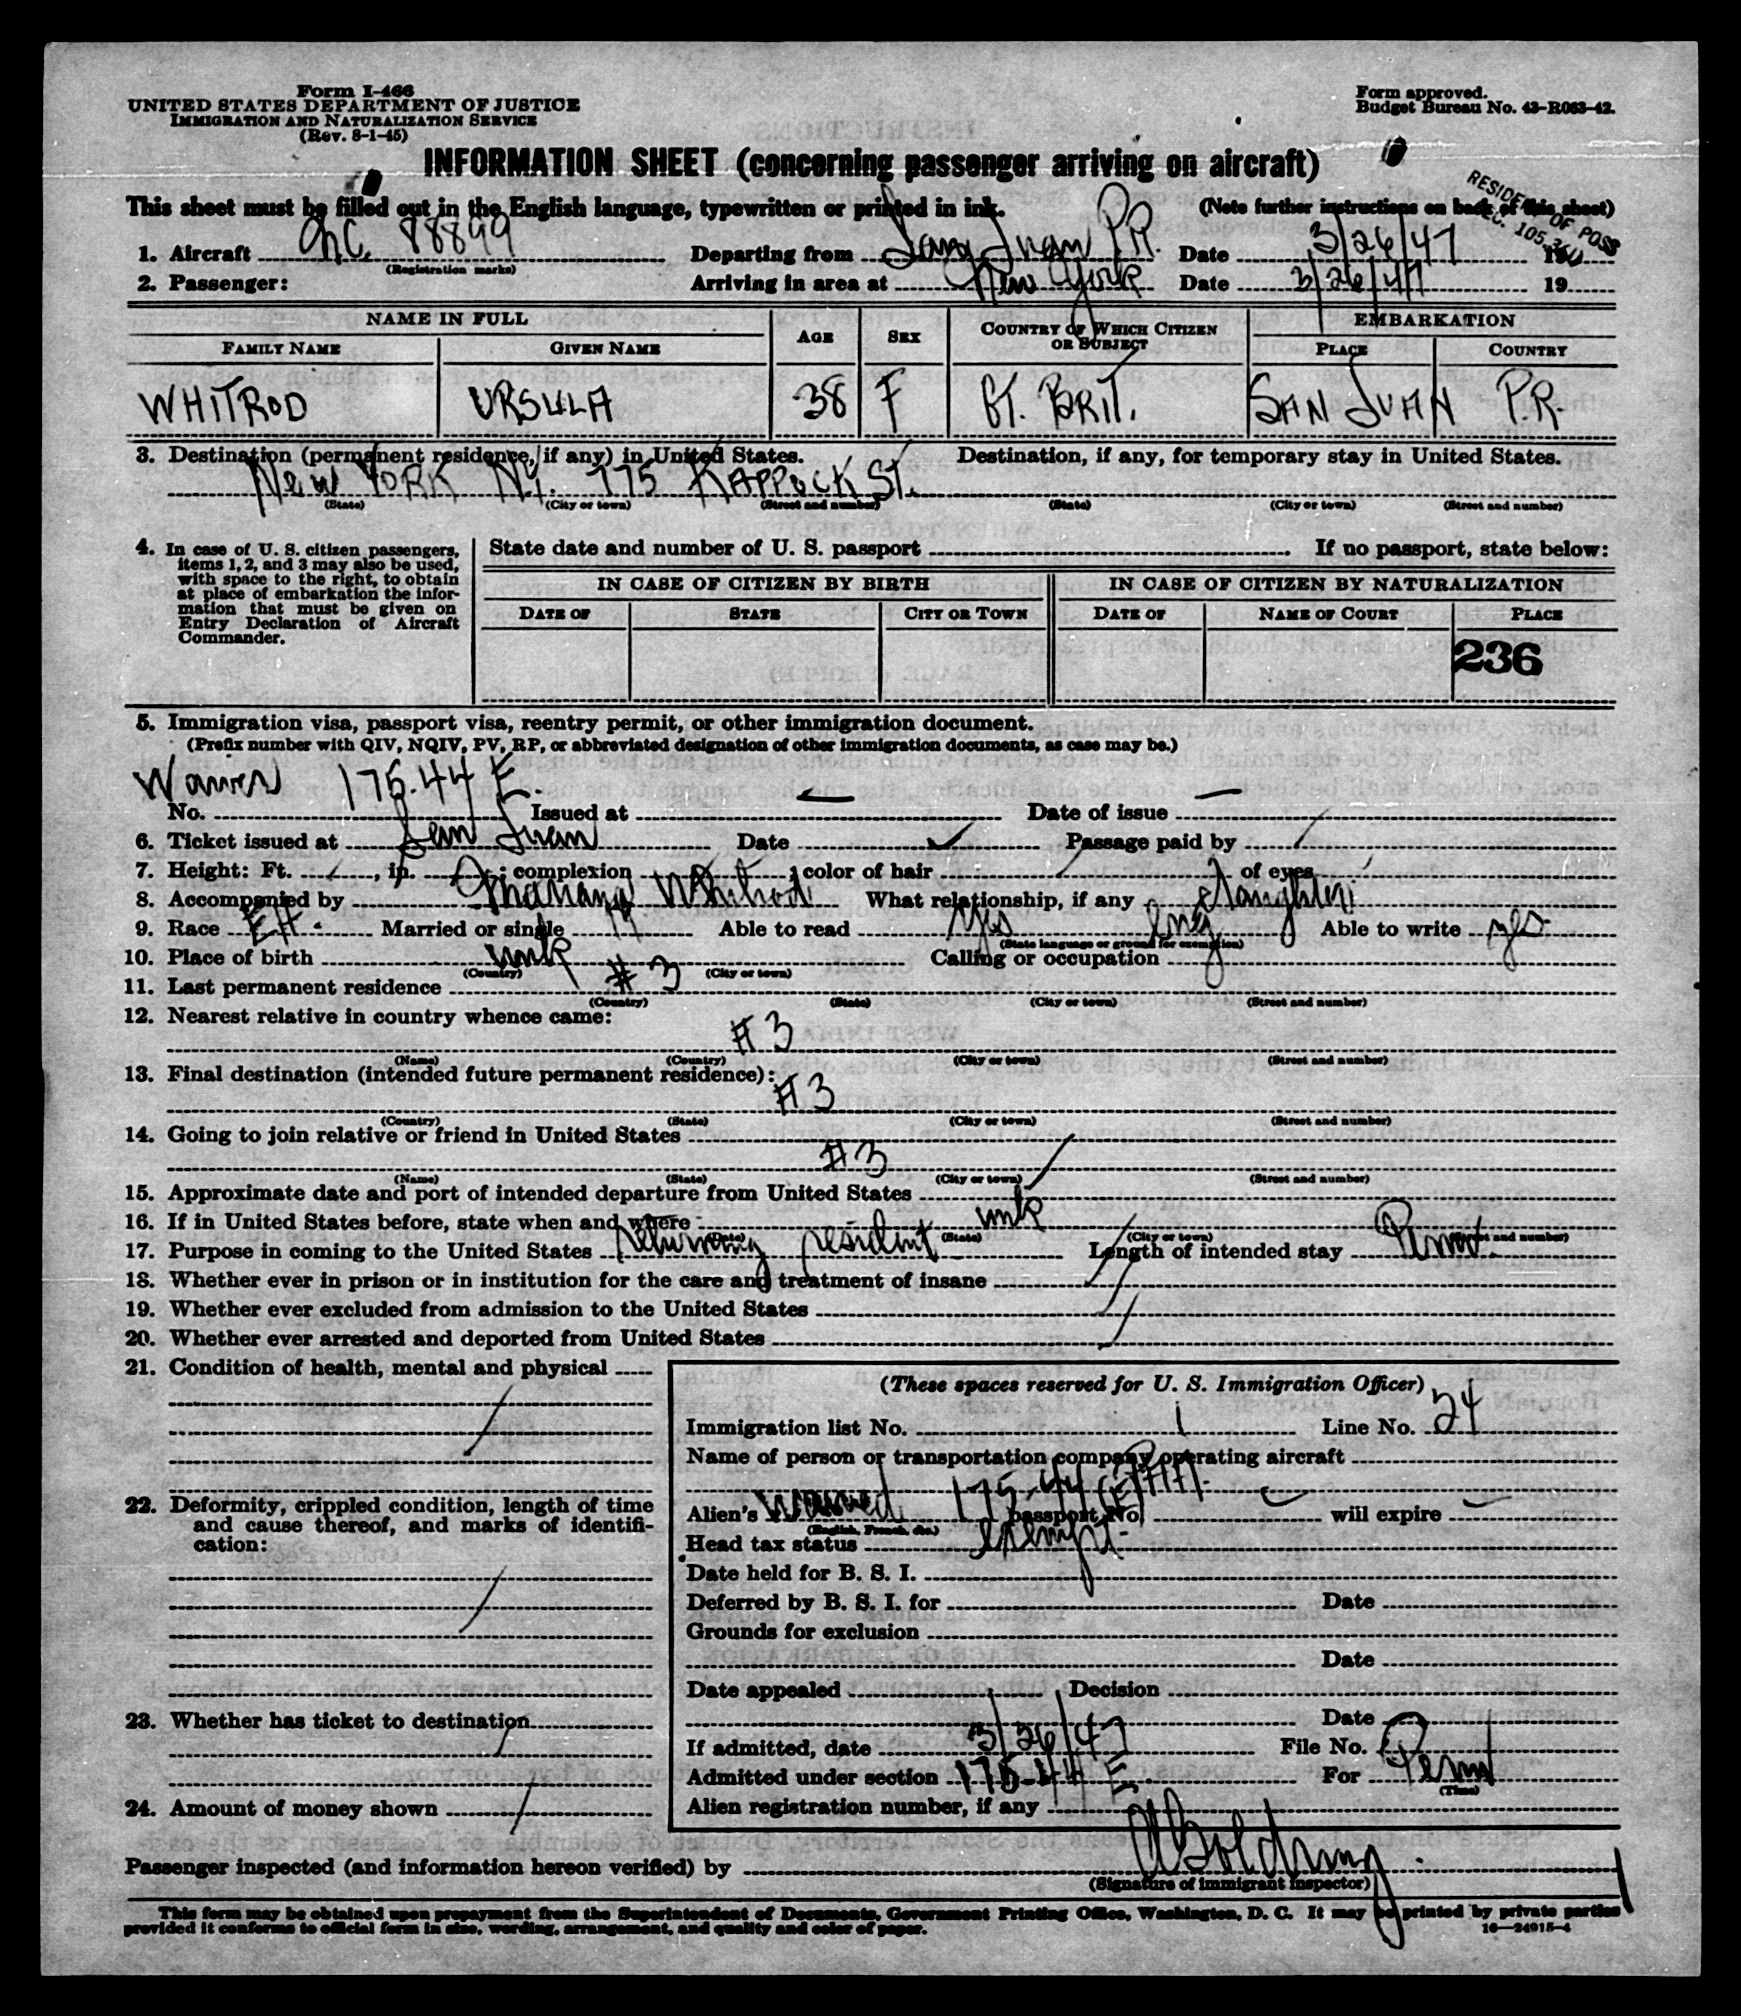 Form I-466
UNITED STATES DEPARTMENT OF JUSTICE
IMMIGRATION AND NATURALIZATION SERVICE
(Rev. 8-1-45)
Form approved.
Budget Bureau No. 43-R063-42.
INFORMATION SHEET (concerning passenger arriving on aircraft)
This sheet must be filled out in the English language, typewritten or printed in ink. (Note further instructions on back of this sheet)
RESIDENT OF POSS
SEC. 105.3
1. Aircraft NC. 88899 Departing from San Juan P.R. Date 3/26/47 19
(Registration marks)
2. Passenger: Arriving in area at New York Date 3/26/47 19
NAME IN FULL AGE SEX COUNTRY OF WHICH CITIZEN OR SUBJECT EMBARKATION
FAMILY NAME GIVEN NAME PLACE COUNTRY
WHITROD URSULA 38 F GT. BRIT. SAN JUAN P.R.
3. Destination (permanent residence, if any) in United States. Destination, if any, for temporary stay in United States.
New YORK N.Y. 775 KAPPOCK ST.
(State) (City or town) (Street and number) (State) (City or town) (Street and number)
4. In case of U. S. citizen passengers, items 1, 2, and 3 may also be used, with space to the right, to obtain at place of embarkation the information that must be given on Entry Declaration of Aircraft Commander.
State date and number of U. S. passport If no passport, state below:
IN CASE OF CITIZEN BY BIRTH IN CASE OF CITIZEN BY NATURALIZATION
DATE OF STATE CITY OR TOWN DATE OF NAME OF COURT PLACE
236
5. Immigration visa, passport visa, reentry permit, or other immigration document.
(Prefix number with QIV, NQIV, PV, RP, or abbreviated designation of other immigration documents, as case may be.)
175.44 E.
No. Issued at — Date of issue —
6. Ticket issued at San Juan Date Passage paid by
7. Height: Ft. , in. ; complexion ; color of hair of eyes
8. Accompanied by Mariana Whitrod What relationship, if any daughter
9. Race EH. Married or single M Able to read Yes Eng Able to write yes
(State language or ground for exemption)
10. Place of birth unk Calling or occupation
(Country) (City or town)
11. Last permanent residence #3
(Country) (State) (City or town) (Street and number)
12. Nearest relative in country whence came:
#3
(Name) (Country) (City or town) (Street and number)
13. Final destination (intended future permanent residence):
#3
(Country) (State) (City or town) (Street and number)
14. Going to join relative or friend in United States
#3
(Name) (State) (City or town) (Street and number)
15. Approximate date and port of intended departure from United States
16. If in United States before, state when and where unk
(Date) (State) (City or town) (Street and number)
17. Purpose in coming to the United States returning resident Length of intended stay Perm.
18. Whether ever in prison or in institution for the care and treatment of insane
19. Whether ever excluded from admission to the United States
20. Whether ever arrested and deported from United States
21. Condition of health, mental and physical
22. Deformity, crippled condition, length of time and cause thereof, and marks of identification:
23. Whether has ticket to destination
24. Amount of money shown
(These spaces reserved for U. S. Immigration Officer)
Immigration list No. 1 Line No. 24
Name of person or transportation company operating aircraft
Alien's 175-44 passport No. will expire
(English, French, etc.)
Head tax status exempt
Date held for B. S. I.
Deferred by B. S. I. for Date
Grounds for exclusion
Date
Date appealed Decision
Date
If admitted, date 3/26/47 File No.
Admitted under section 175-44 E. For Perm
(Time)
Alien registration number, if any
Passenger inspected (and information hereon verified) by
(Signature of immigrant inspector)
This form may be obtained upon prepayment from the Superintendent of Documents, Government Printing Office, Washington, D. C. It may be printed by private parties
provided it conforms to official form in size, wording, arrangement, and quality and color of paper.
16—24915-4